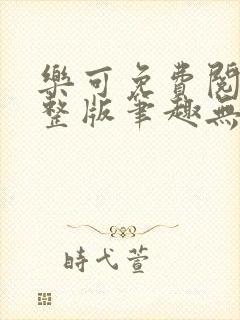 樂可免費閱
整版筆趣無
時戈萱